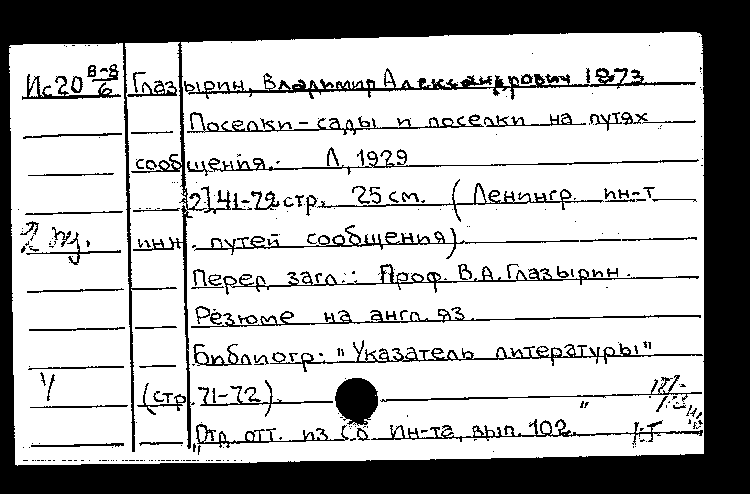 Ис20 8-8/6 Глазырин, Владимир Александрович 1873
Поселки-сады и поселки на путях
сообщения.- Л., 1929
[2], 41-72 стр. 25 см. (Ленингр. ин-т
2 экз. инж. путей сообщения).
Перед загл.: Проф. В.А.Глазырин.
Резюме на англ. яз.
Библиогр.: "Указатель литературы"
(стр. 71-72).
"Отд. отт. из Сб. Ин-та, вып. 102."